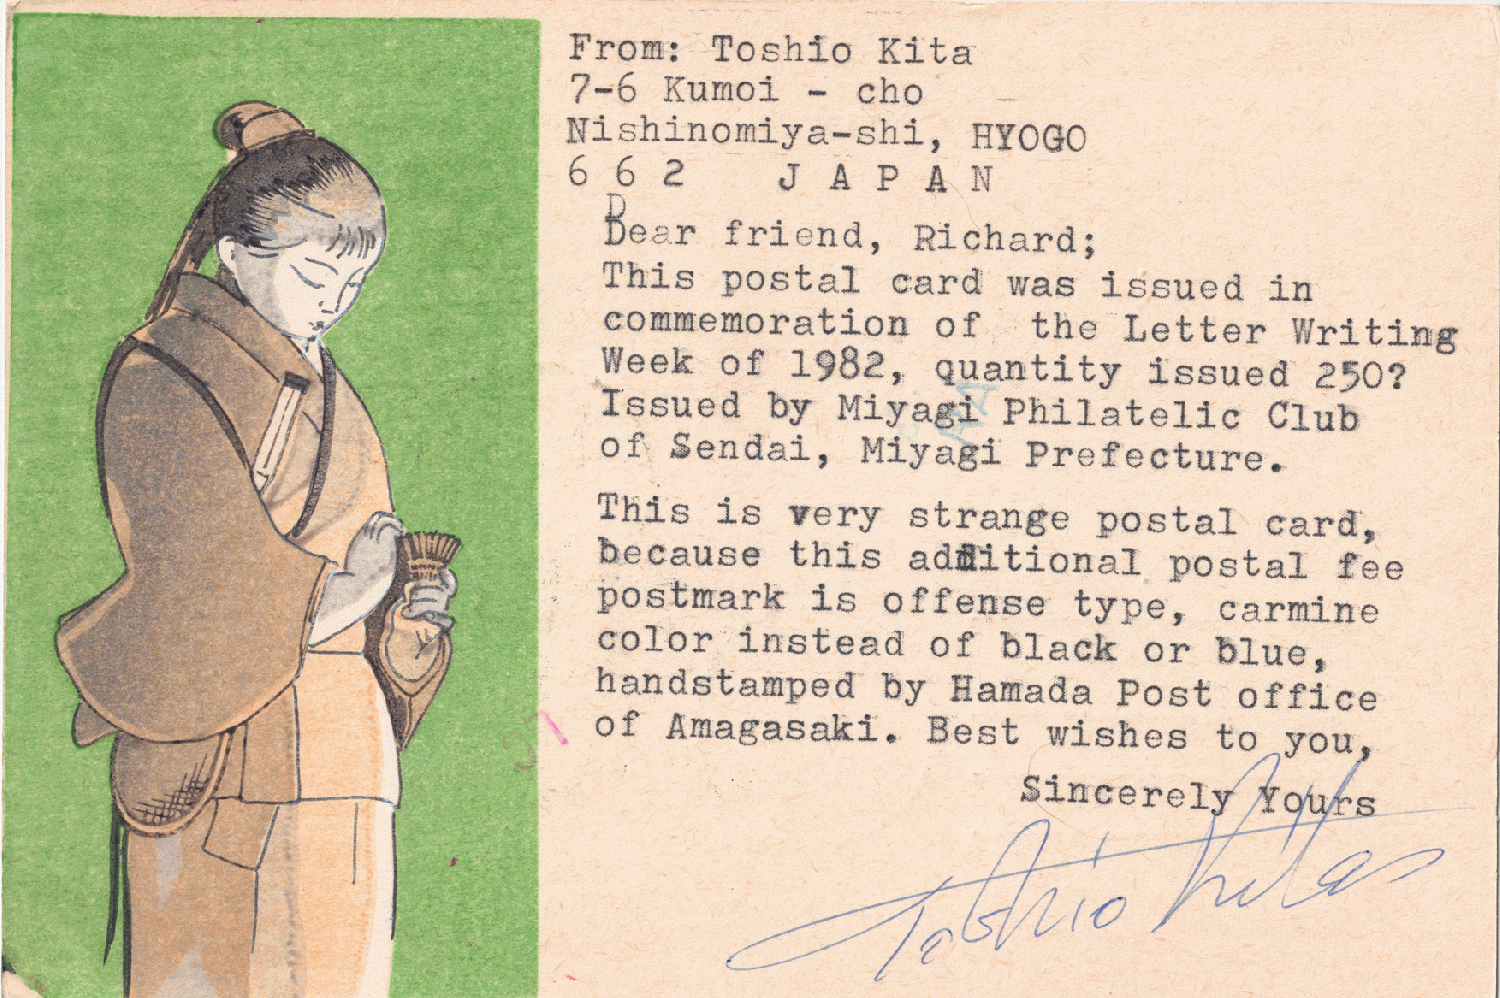 From: Toshio Kita
7-6 Kumoi - cho
Nishinomiya-shi, HYOGO
6 6 2   J A P A N
Dear friend, Richard;
This postal card was issued in
commemoration of  the Letter Writing
Week of 1982, quantity issued 250?
Issued by Miyagi Philatelic Club
of Sendai, Miyagi Prefecture.
This is very strange postal card,
because this additional postal fee
postmark is offense type, carmine
color instead of black or blue,
handstamped by Hamada Post office
of Amagasaki. Best wishes to you,
Sincerely Yours
Toshio Kita